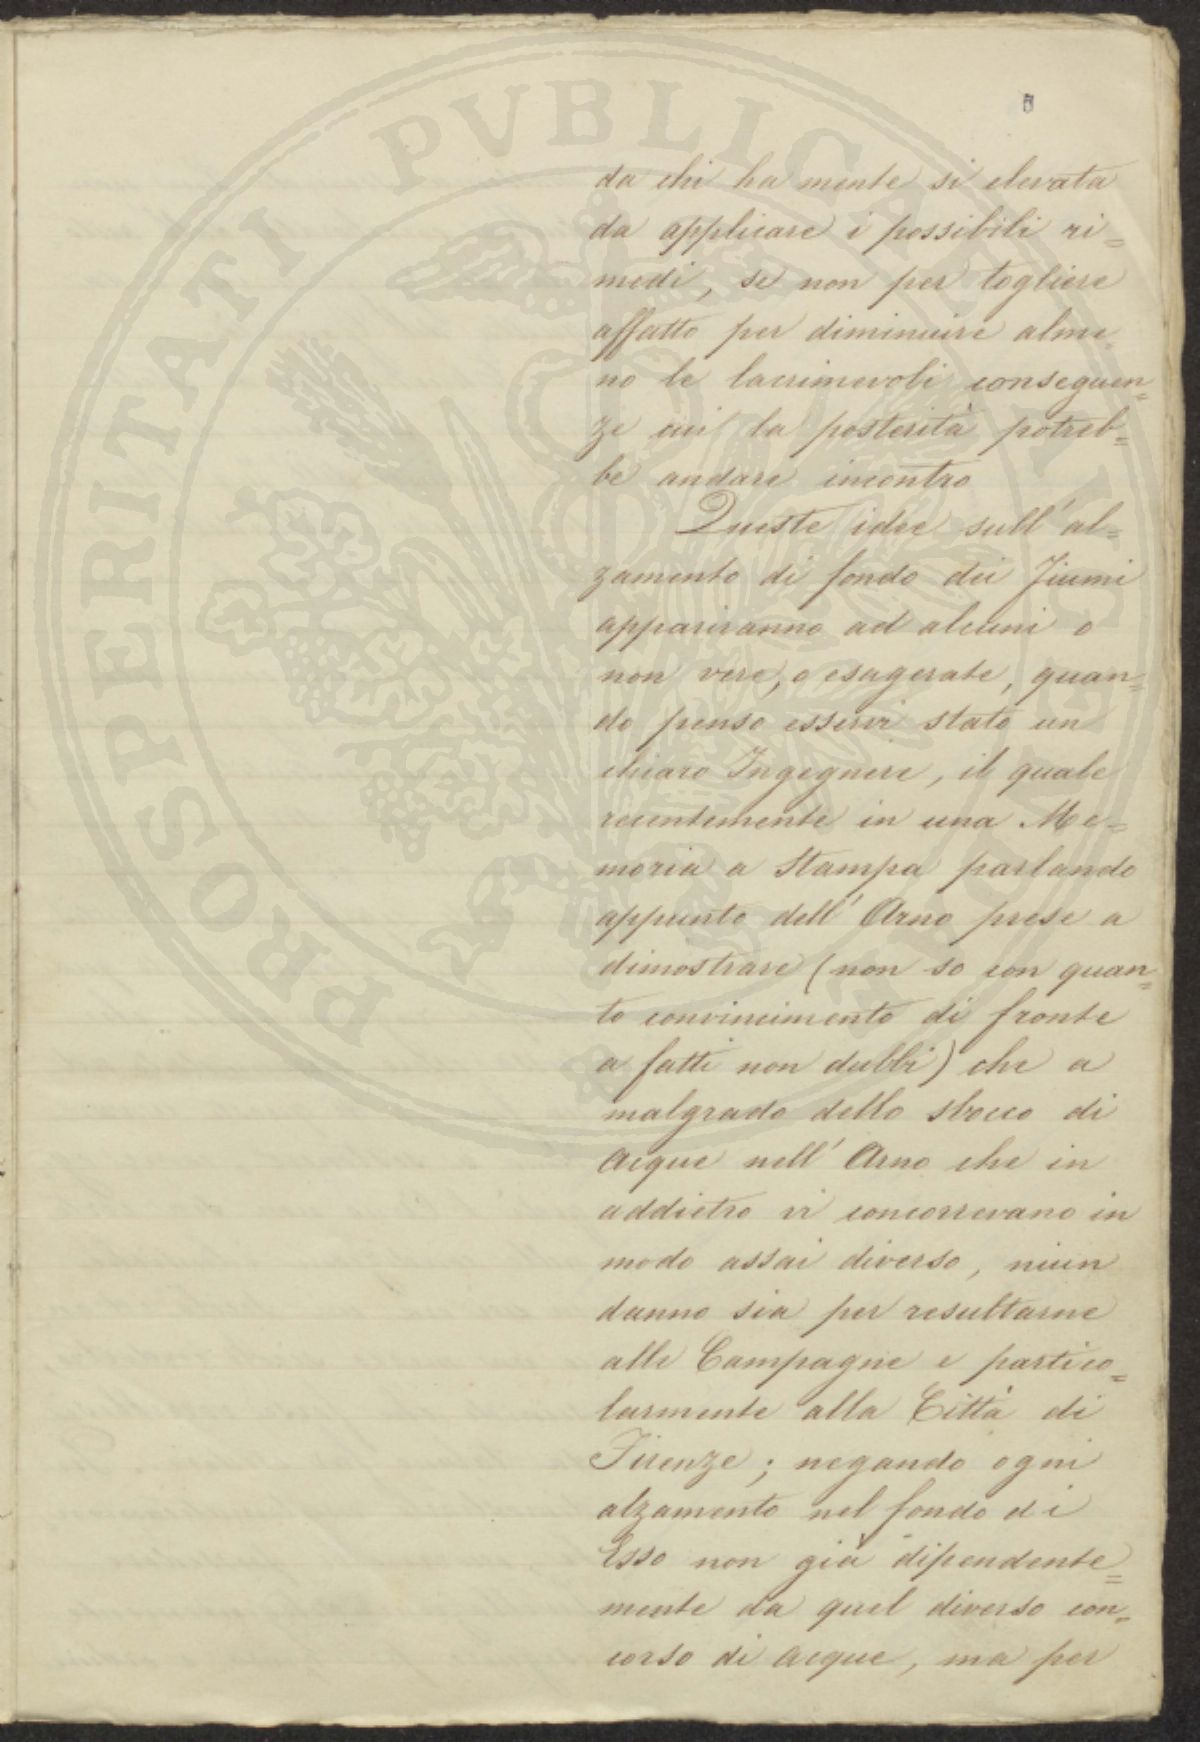 PROSPERITATI PVBLICAE AVGENDAE
da chi ha mente sì elevata
da applicare i possibili ri=
medi, se non per togliere
affatto per diminuire alme
no le lacrimevoli conseguen=
ze cui la posterità potreb=
be andare incontro
Queste idee sull'al=
zamento di fondo dei Fiumi
appariranno ad alcuni o
non vere, o esagerate, quan=
do penso esservi stato un
chiaro Ingegnere, il quale
recentemente in una Me=
moria a Stampa parlando
appunto dell'Arno prese a
dimostrare (non so con quan=
to convincimento di fronte
a fatti non dubbi) che a
malgrado dello sbocco di
Acque nell'Arno che in
addietro vi concorrevano in
modo assai diverso, niun
danno sia per resultarne
alle Campagne e partico=
larmente alla Città di
Firenze; negando ogni
alzamento nel fondo di
Esso non già dipendente=
mente da quel diverso con=
corso di Acque, ma per